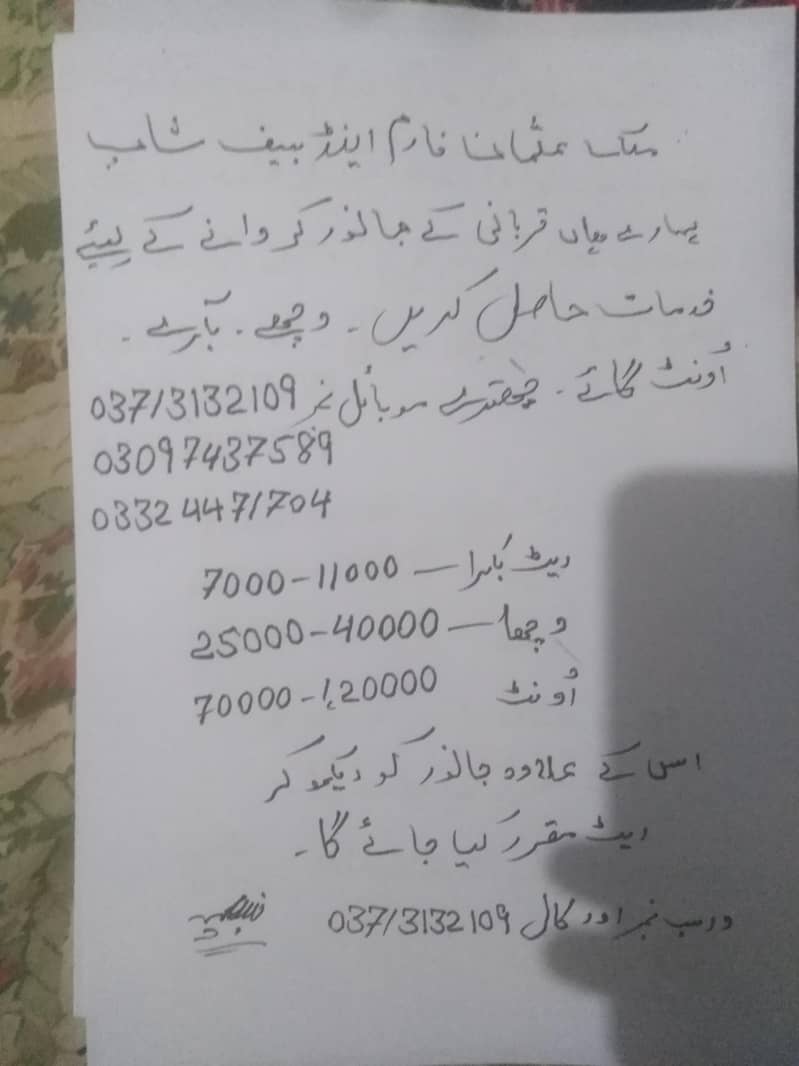 ملک عثمان فارم اینڈ بیف شاپ
ہمارے یہاں قربانی کے جانور کروانے کے لیئے
خدمات حاصل کریں۔ وچھے۔ بکرے۔
اُونٹ گائے۔ چھترے موبائل نمبر 03713132109
03097437589
03324471704
ریٹ بکرا — 7000-11000
وچھا — 25000-40000
اُونٹ 70000-1,20000
اس کے علاوہ جانور کو دیکھ کر
ریٹ مقرر کیا جائے گا۔
نمبر اور کال 03713132109